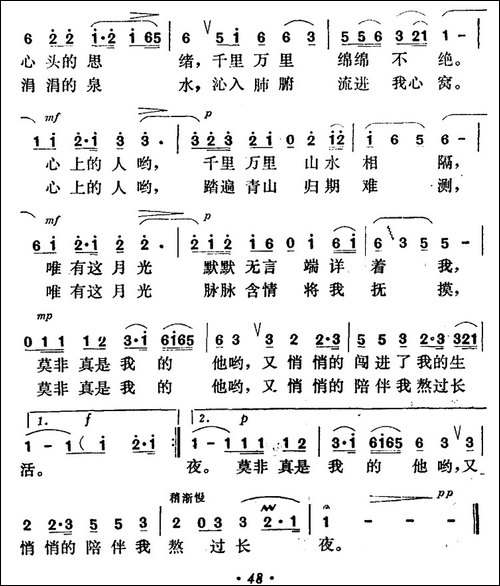 6 2 2 i·2 i 6 5 | 6 5 i 6 6 | 5 5 6 3 2 1 | 1 -
心头的思 绪，千里万里 绵绵不绝。
涓涓的泉 水，沁入肺腑 流进我心窝。
mf p
1 i 2·i 3 3· | 3 2 3 2 i 0 2 i 2 | i 6 5 | 6 -
心上的人哟， 千里万里 山水相 隔，
心上的人哟， 踏遍青山 归期难 测，
mf p
6 i 2·i 2 2· | 2 i 2 i 6 0 i 6 i | 6 3 5 | 5 -
唯有这月光 默默无言 端详着 我，
唯有这月光 脉脉含情 将我抚 摸，
mp
0 1 1 1 2 3·i 6 i 6 5 | 6 3 ∨ 2 2·3 2 | 5 5 3 2·3 3 2 1
莫非真是我的 他哟，又悄悄的闯进了我的生
莫非真是我的 他哟，又悄悄的陪伴我熬过长
1. f 2. p
1 - 1 ( i 2·i :‖ 1 - 1 1 1 1 2 | 3·i 6 i 6 5 6 3 ∨ 3
活。 夜。 莫非真是我的他哟，又
稍渐慢 pp
2 2·3 5 5 3 | 2 0 3 3 2·1 | 1 - - -
悄悄的陪伴我 熬过长 夜。
·48·